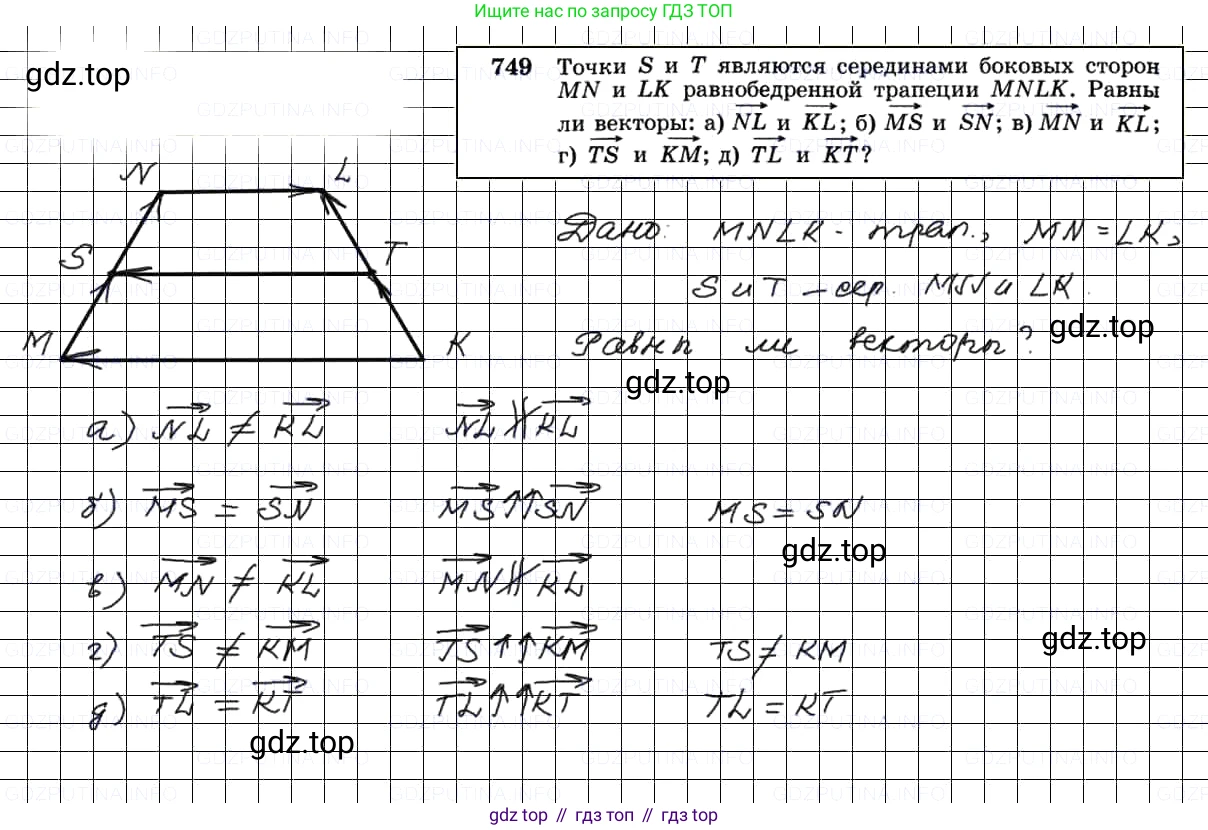 Ищите нас по запросу ГДЗ ТОП
gdz.top
749 Точки S и T являются серединами боковых сторон
MN и LK равнобедренной трапеции MNLK. Равны
ли векторы: а) NL и KL; б) MS и SN; в) MN и KL;
г) TS и KM; д) TL и KT?
N L
S T
M K
Дано: MNLK - трап., MN = LK,
S и T - сер. MN и LK.
gdz.top
Равны ли векторы?
gdz.top
а) NL ≠ KL NL ∦ KL
б) MS = SN MS ↑↑ SN MS = SN
gdz.top
в) MN ≠ KL MN ∦ KL
г) TS ≠ KM TS ↑↑ KM TS ≠ KM
gdz.top
д) TL = KT TL ↑↑ KT TL = KT
gdz.top
gdz top // гдз топ // гдз top
GDZPUTINA.INFO